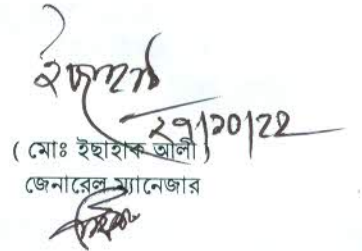 ২৭/১০/২২
( মোঃ ইছাহাক আলী )
জেনারেল ম্যানেজার